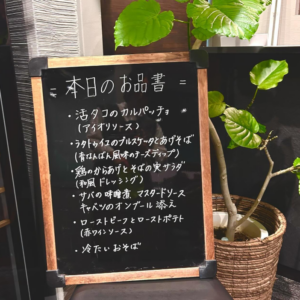 = 本日のお品書 =
・活タコのカルパッチョ
(アイオリソース)
・ラタトゥイユのブルスケータとあげそば
(香ばんばん風味のチーズディップ)
・鶏のからあげとそばの実サラダ
(和風ドレッシング)
・サバの味噌煮 マスタードソース
キャベツのオンブール添え
・ローストビーフとローストポテト
(赤ワインソース)
・冷たいおそば